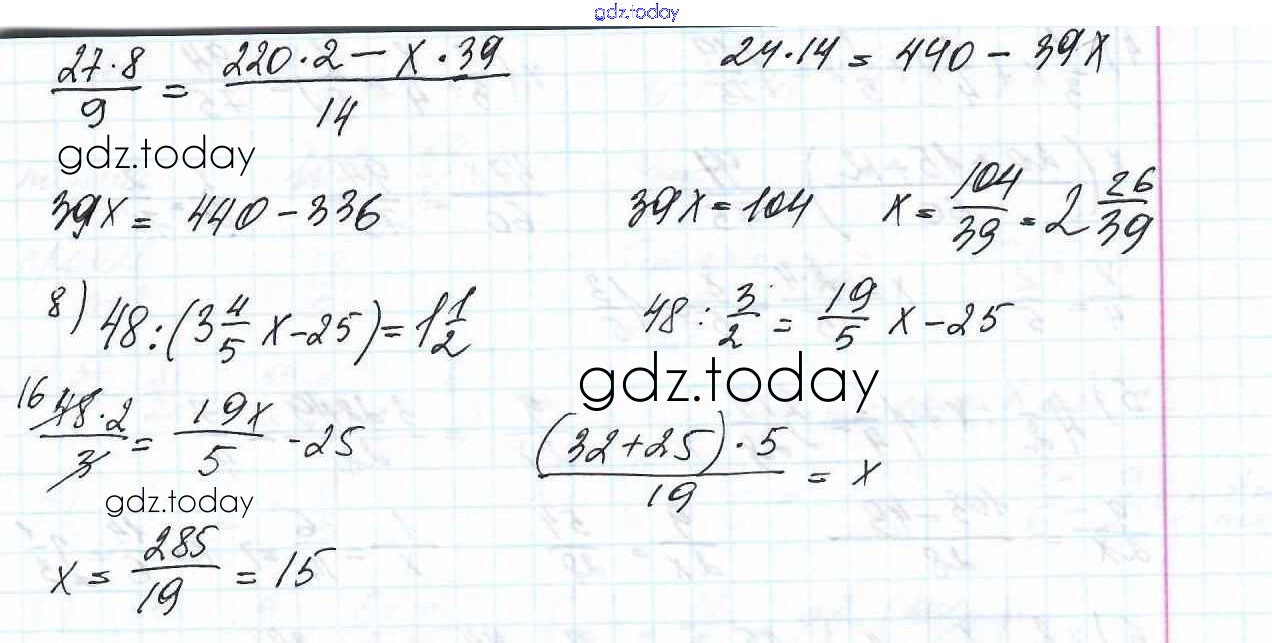 gdz.today
27·8/9 = (220·2 − x·39)/14    24·14 = 440 − 39x
gdz.today
39x = 440 − 336    39x = 104    x = 104/39 = 2 26/39
8) 48:(3 4/5 x − 25) = 1 1/2    48 : 3/2 = 19/5 x − 25
gdz.today
16 48·2/3 = 19x/5 − 25    (32+25)·5/19 = x
gdz.today
x = 285/19 = 15